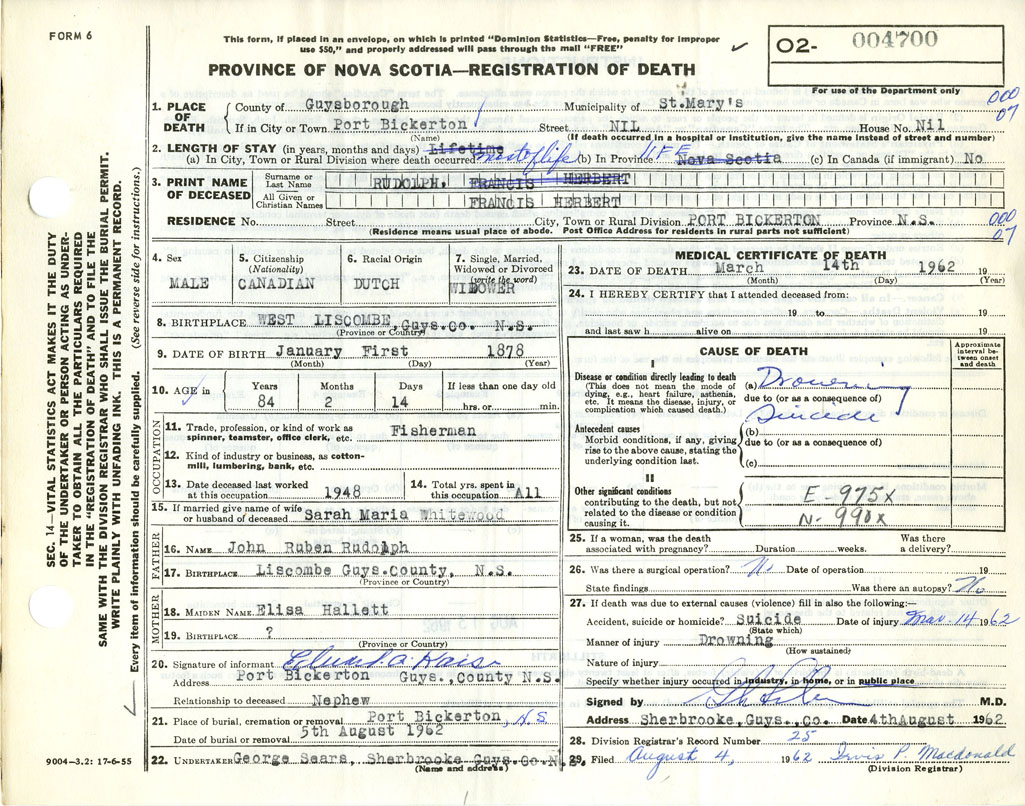 FORM 6
This form, if placed in an envelope, on which is printed "Dominion Statistics—Free, penalty for improper
use $50," and properly addressed will pass through the mail "FREE"
PROVINCE OF NOVA SCOTIA—REGISTRATION OF DEATH
O2- 004700
For use of the Department only
000
07
1. PLACE OF DEATH
County of Guysborough Municipality of St.Mary's
If in City or Town Port Bickerton Street NIL House No. Nil
(Name) (If death occurred in a hospital or institution, give the name instead of street and number)
2. LENGTH OF STAY (in years, months and days) Lifetime
(a) In City, Town or Rural Division where death occurred most of life (b) In Province LIFE Nova Scotia (c) In Canada (if immigrant) No
3. PRINT NAME OF DECEASED
Surname or Last Name RUDOLPH. FRANCIS HERBERT
All Given or Christian Names FRANCIS HERBERT
RESIDENCE No. Street City, Town or Rural Division PORT BICKERTON Province N.S.
(Residence means usual place of abode. Post Office Address for residents in rural parts not sufficient)
000
07
4. Sex MALE
5. Citizenship (Nationality) CANADIAN
6. Racial Origin DUTCH
7. Single, Married, Widowed or Divorced (write the word) WIDOWER
8. BIRTHPLACE WEST LISCOMBE, Guys.Co. N.S.
(Province or Country)
9. DATE OF BIRTH January First 1878
(Month) (Day) (Year)
10. AGE in Years Months Days If less than one day old
84 2 14 hrs. or min.
OCCUPATION
11. Trade, profession, or kind of work as spinner, teamster, office clerk, etc. Fisherman
12. Kind of industry or business, as cotton-mill, lumbering, bank, etc.
13. Date deceased last worked at this occupation 1948
14. Total yrs. spent in this occupation All
15. If married give name of wife or husband of deceased Sarah Maria Whitewood
FATHER
16. NAME John Ruben Rudolph
17. BIRTHPLACE Liscombe Guys.County, N.S.
(Province or Country)
MOTHER
18. MAIDEN NAME Elisa Hallett
19. BIRTHPLACE ?
(Province or Country)
20. Signature of informant
Address Port Bickerton Guys.,County N.S.
Relationship to deceased Nephew
21. Place of burial, cremation or removal Port Bickerton, N.S.
Date of burial or removal 5th August 1962
22. UNDERTAKER George Sears, Sherbrooke Guys.Co. N.S.
(Name and address)
MEDICAL CERTIFICATE OF DEATH
23. DATE OF DEATH March 14th 1962 19
(Month) (Day) (Year)
24. I HEREBY CERTIFY that I attended deceased from:
19 to 19
and last saw h alive on 19
CAUSE OF DEATH
Approximate interval between onset and death
I
Disease or condition directly leading to death
(This does not mean the mode of dying, e.g., heart failure, asthenia, etc. It means the disease, injury, or complication which caused death.)
(a) Drowning
due to (or as a consequence of)
Suicide
Antecedent causes
Morbid conditions, if any, giving rise to the above cause, stating the underlying condition last.
(b)
due to (or as a consequence of)
(c)
II
Other significant conditions
contributing to the death, but not related to the disease or condition causing it.
E-975x
N-990x
25. If a woman, was the death associated with pregnancy? Duration weeks. Was there a delivery?
26. Was there a surgical operation? No Date of operation 19
State findings Was there an autopsy? No
27. If death was due to external causes (violence) fill in also the following:—
Accident, suicide or homicide? Suicide Date of injury Mar. 14 1962
(State which)
Manner of injury Drowning
(How sustained)
Nature of injury
Specify whether injury occurred in industry, in home, or in public place
Signed by M.D.
Address Sherbrooke,Guys.,Co. Date 4thAugust 1962.
28. Division Registrar's Record Number 25
29. Filed August 4, 1962 Irvis P. Macdonald
(Division Registrar)
SEC. 14—VITAL STATISTICS ACT MAKES IT THE DUTY
OF THE UNDERTAKER OR PERSON ACTING AS UNDER-
TAKER TO OBTAIN ALL THE PARTICULARS REQUIRED
IN THE "REGISTRATION OF DEATH" AND TO FILE THE
SAME WITH THE DIVISION REGISTRAR WHO SHALL ISSUE THE BURIAL PERMIT.
WRITE PLAINLY WITH UNFADING INK. THIS IS A PERMANENT RECORD.
Every item of information should be carefully supplied. (See reverse side for instructions.)
9004—3.2: 17-6-55